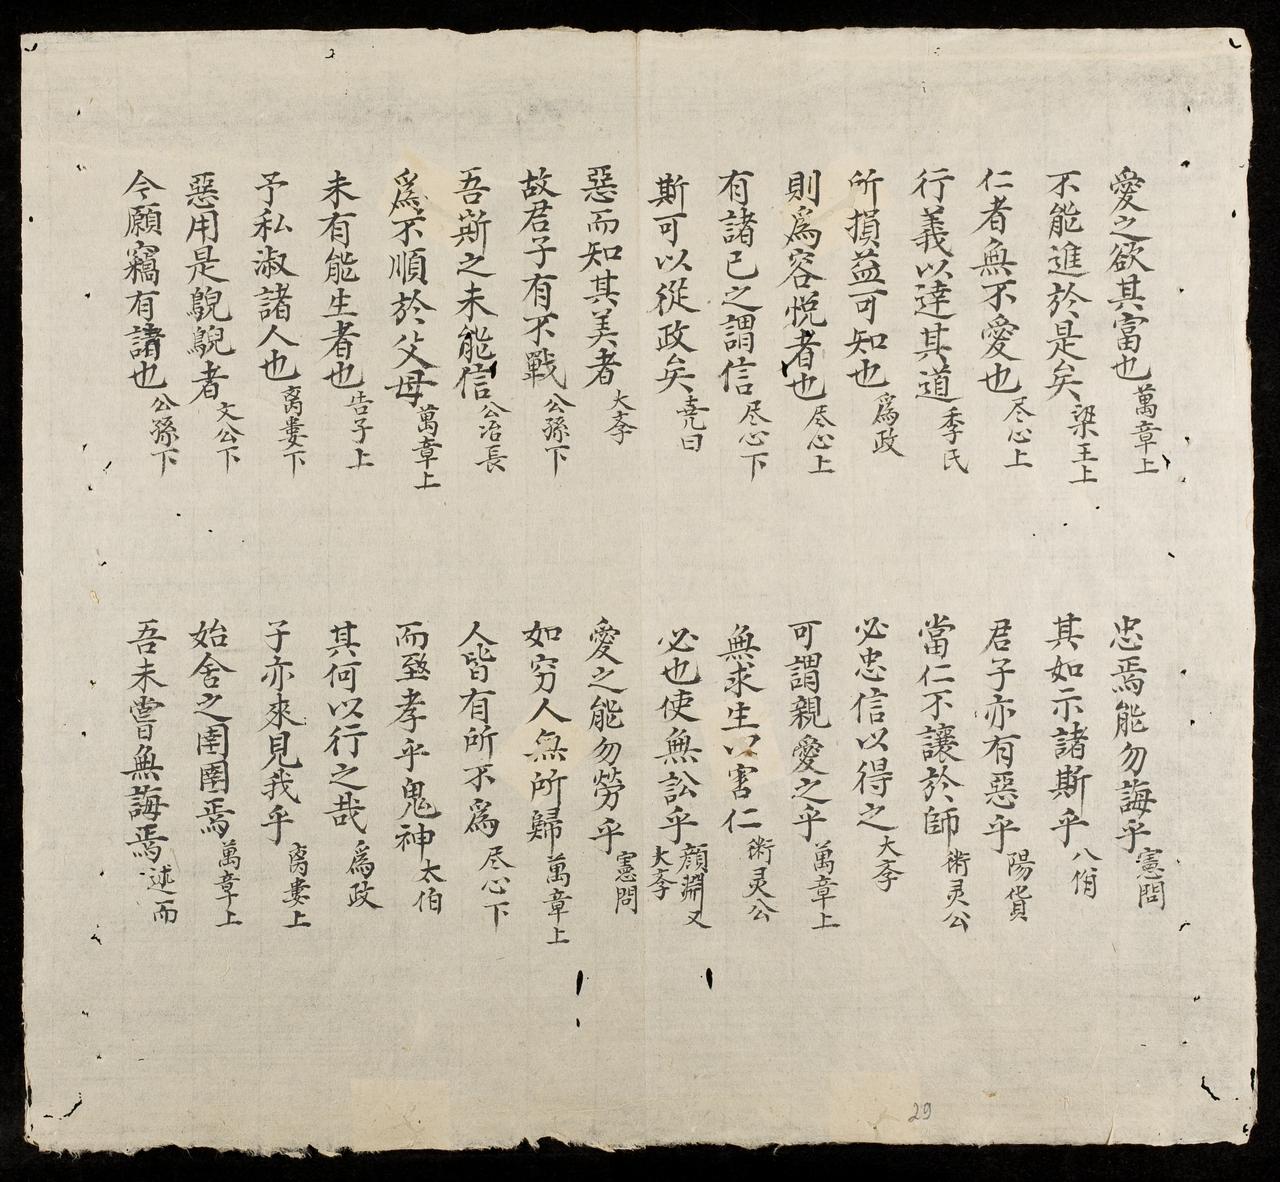 愛之欲其富也 萬章上
不能進於是矣 梁王上
仁者無不愛也 尽心上
行義以達其道 季氏
所損益可知也 爲政
則爲容悦者也 尽心上
有諸己之謂信 尽心下
斯可以從政矣 尭曰
惡而知其美者 大斈
故君子有不戰 公孫下
吾斯之未能信 公冶長
爲不順於父母 萬章上
未有能生者也 告子上
予私淑諸人也 离婁下
惡用是鶃鶃者 文公下
今願竊有請也 公孫下
忠焉能勿誨乎 憲問
其如示諸斯乎 八佾
君子亦有惡乎 陽貨
當仁不讓於師 術灵公
必忠信以得之 大斈
可謂親愛之乎 萬章上
無求生以害仁 術灵公
必也使無訟乎 顔淵又大斈
愛之能勿勞乎 憲問
如穷人無所歸 萬章上
人皆有所不爲 尽心下
而致孝乎鬼神 太伯
其何以行之哉 爲政
子亦來見我乎 离婁上
始舍之圉圉焉 萬章上
吾未嘗無誨焉 述而
29